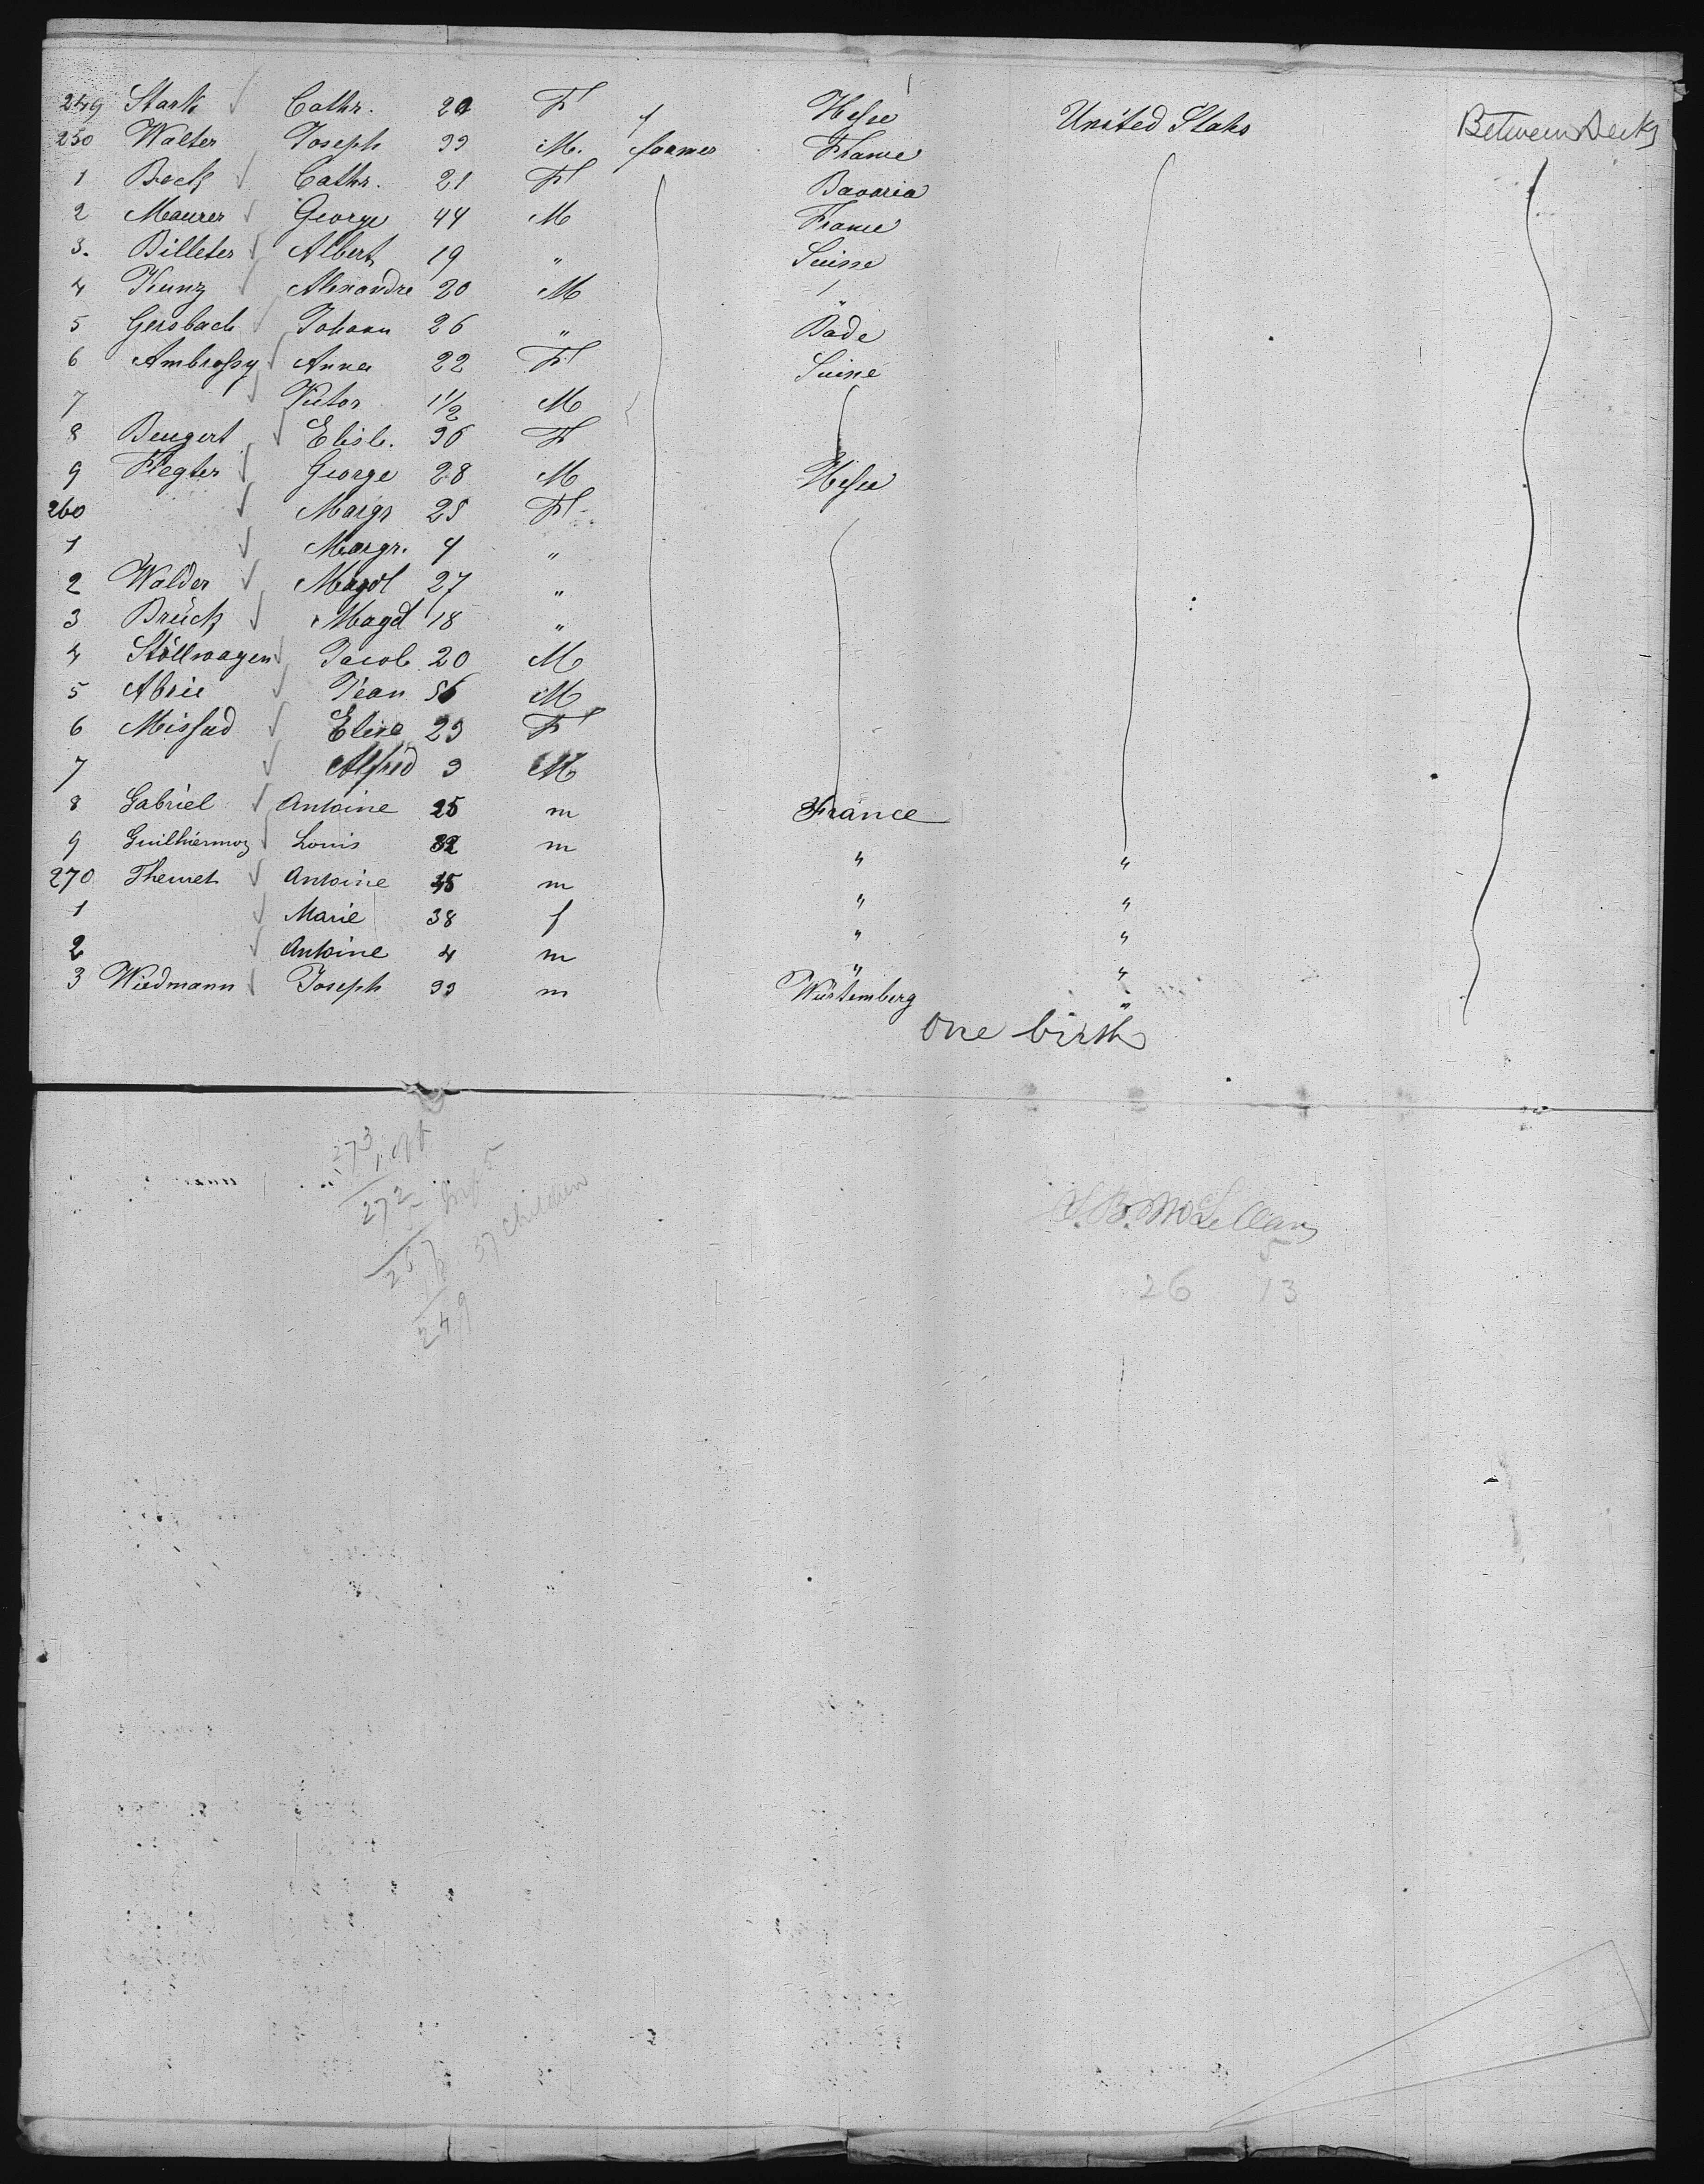 249 Stark Cathr. 20 F Hesse United States Between Decks
250 Walter Joseph 33 M. farmer France
1 Bock Cathr. 21 F Bavaria
2 Maurer George 44 M France
3. Billeter Albert 19 " Suisse
4 Kunz Alexandre 20 M "
5 Gersbach Johann 26 " Bade
6 Ambrossy Anna 22 F Suisse
7 Victor 1 1/2 M
8 Beugert Elisb. 36 F
9 Flegler George 28 M Hesse
260 Margr 25 F
1 Margr. 4 "
2 Walder Magd 27 "
3 Brück Magd 18 "
4 Stöllwagen Jacob 20 M
5 Abrie Jean 56 M
6 Missud Elise 23 F
7 Alfred 3 M
8 Gabriel Antoine 25 m France
9 Guilhermoz Louis 32 m " "
270 Themet Antoine 45 m " "
1 Marie 38 f " "
2 Antoine 4 m " "
3 Wiedmann Joseph 33 m Würtemberg "
One birth
273
1 off
272
5 Inf 5
267
18 37 children
249
S. B. McLellan
5
26 13